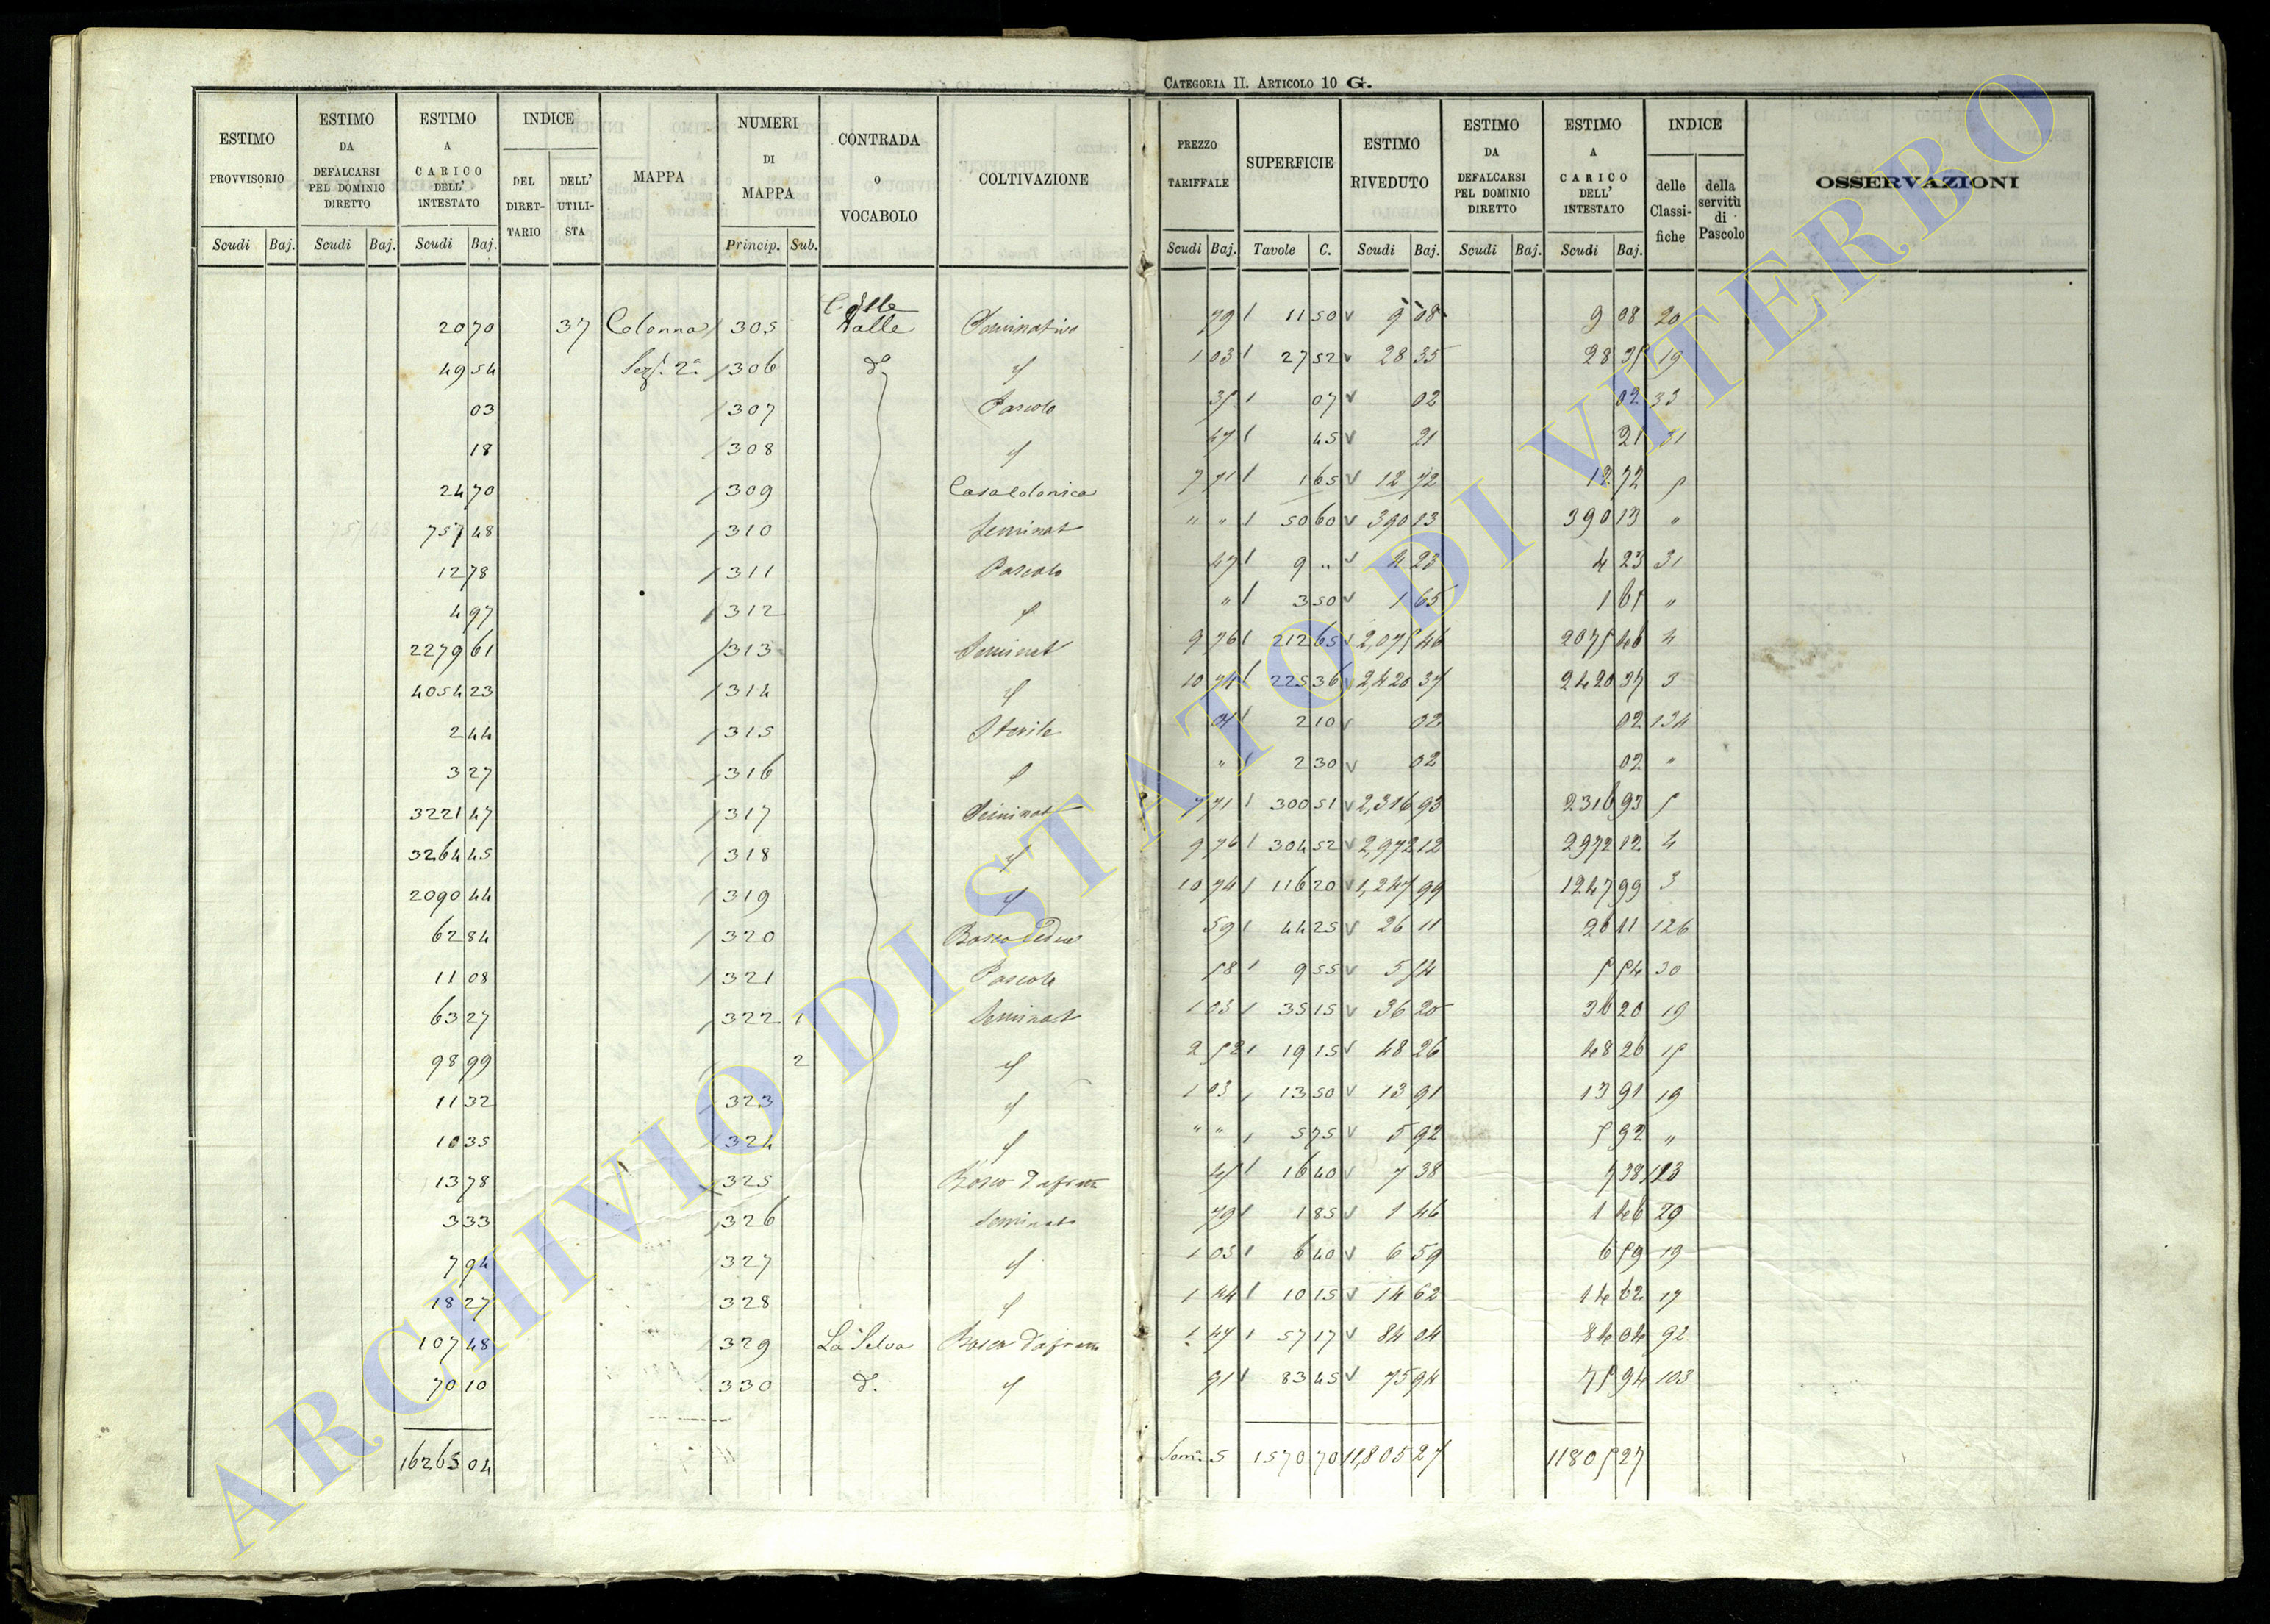 CATEGORIA II. ARTICOLO 10 G.
ESTIMO PROVVISORIO Scudi Baj.
ESTIMO DA DEFALCARSI PEL DOMINIO DIRETTO Scudi Baj.
ESTIMO A CARICO DELL' INTESTATO Scudi Baj.
INDICE DEL DIRET-TARIO DELL' UTILI-STA
MAPPA
NUMERI DI MAPPA Princip. Sub.
CONTRADA O VOCABOLO
COLTIVAZIONE
PREZZO TARIFFALE Scudi Baj.
SUPERFICIE Tavole C.
ESTIMO RIVEDUTO Scudi Baj.
ESTIMO DA DEFALCARSI PEL DOMINIO DIRETTO Scudi Baj.
ESTIMO A CARICO DELL' INTESTATO Scudi Baj.
INDICE delle Classi-fiche della servitù di Pascolo
OSSERVAZIONI
20 70 37 Colonna 305 Colle Valle Seminativo 79 11 50 9 08 9 08 20
49 54 Sez. 2a 306 do " 1 03 27 52 28 35 28 35 19
03 307 Pascolo 35 07 02 02 33
18 308 " 47 45 21 21 31
24 70 309 Casa colonica 7 71 1 65 12 72 12 72 5
757 48 310 Seminat " " 50 60 390 13 390 13 "
12 78 311 Pascolo 47 9 " 4 23 4 23 31
4 97 312 " " 3 50 1 65 1 65 "
2279 61 313 Seminat 9 76 212 65 2,075 46 2075 46 4
4054 23 314 " 10 74 225 36 2,420 37 2420 37 3
2 44 315 Sterile 01 2 10 02 02 134
3 27 316 " " 2 30 02 02 "
3221 47 317 Seminat 7 71 300 51 2,316 93 2316 93 5
3264 45 318 " 9 76 304 52 2,972 12 2972 12 4
2090 44 319 " 10 74 116 20 1,247 99 1247 99 3
62 84 320 Bosco Ceduo 59 44 25 26 11 26 11 126
11 08 321 Pascolo 58 9 55 5 54 5 54 30
63 27 322 1 Seminat 1 03 35 15 36 20 36 20 19
98 99 2 " 2 52 19 15 48 26 48 26 15
11 32 323 " 1 03 13 50 13 91 13 91 19
10 35 324 " " " 5 75 5 92 5 92 "
13 78 325 Bosco da frutto 45 16 40 7 38 7 38 123
3 33 326 Seminat 79 1 85 1 46 1 46 20
7 94 327 " 1 03 6 40 6 59 6 59 19
18 27 328 " 1 44 10 15 14 62 14 62 17
107 48 329 La Selva Bosco da frutto 1 47 57 17 84 04 84 04 92
70 10 330 do " 91 83 45 75 94 75 94 103
16263 04 Som. S 1570 70 11,805 27 11805 27
ARCHIVIO DI STATO DI VITERBO